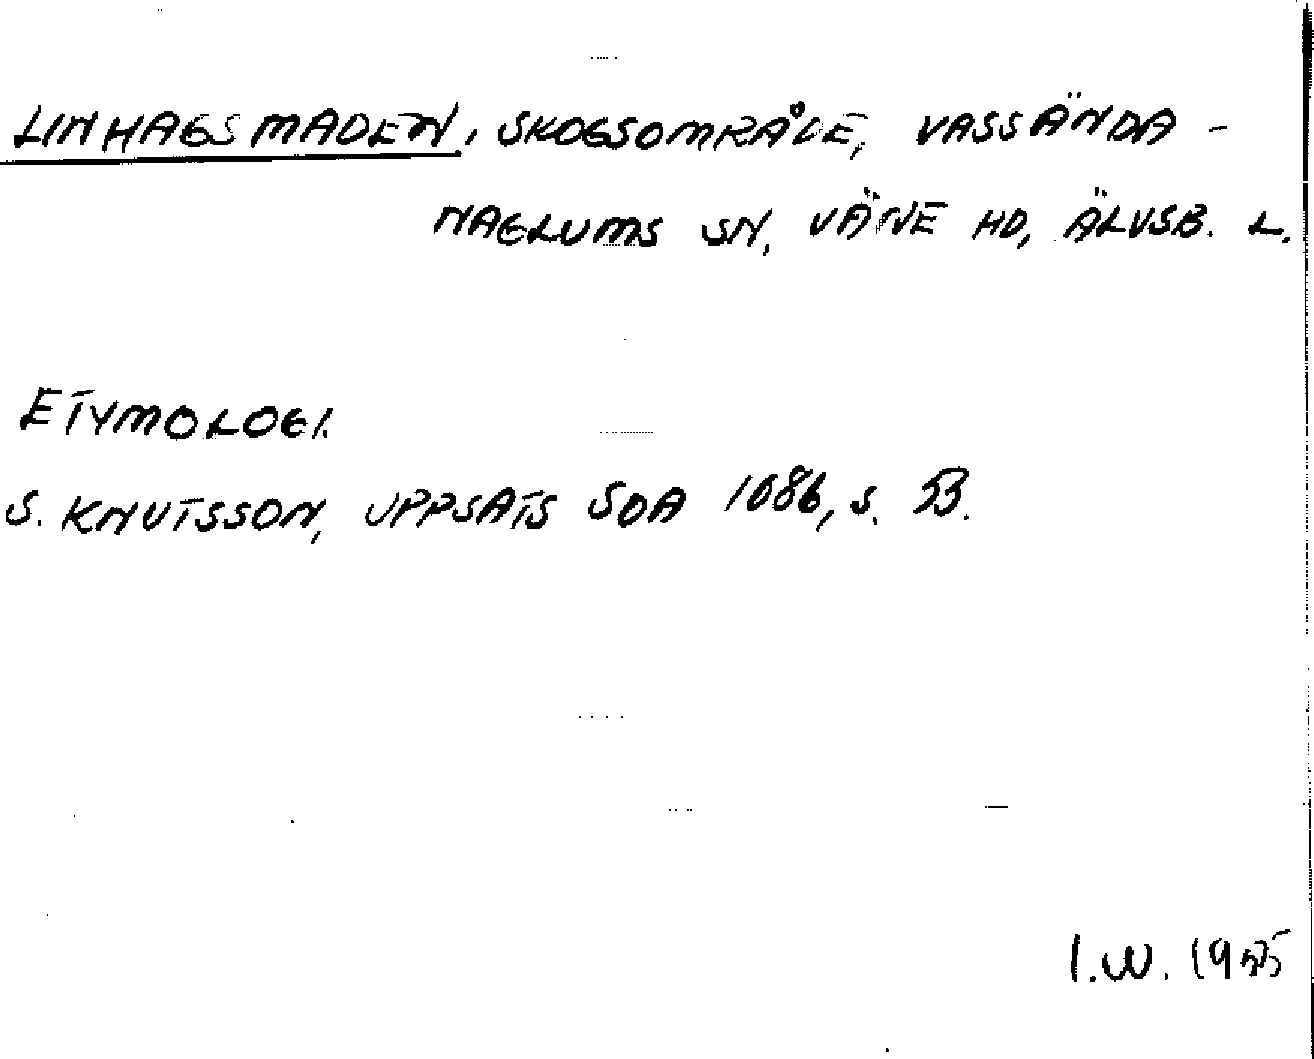 LINHAGSMADEN, SKOGSOMRÅDE, VASSÄNDA -
NAGLUMS SN, VÄNE HD, ÄLVSB. L.
ETYMOLOGI.
S. KNUTSSON, UPPSATS SOA 1086, s. 53.
I.W.